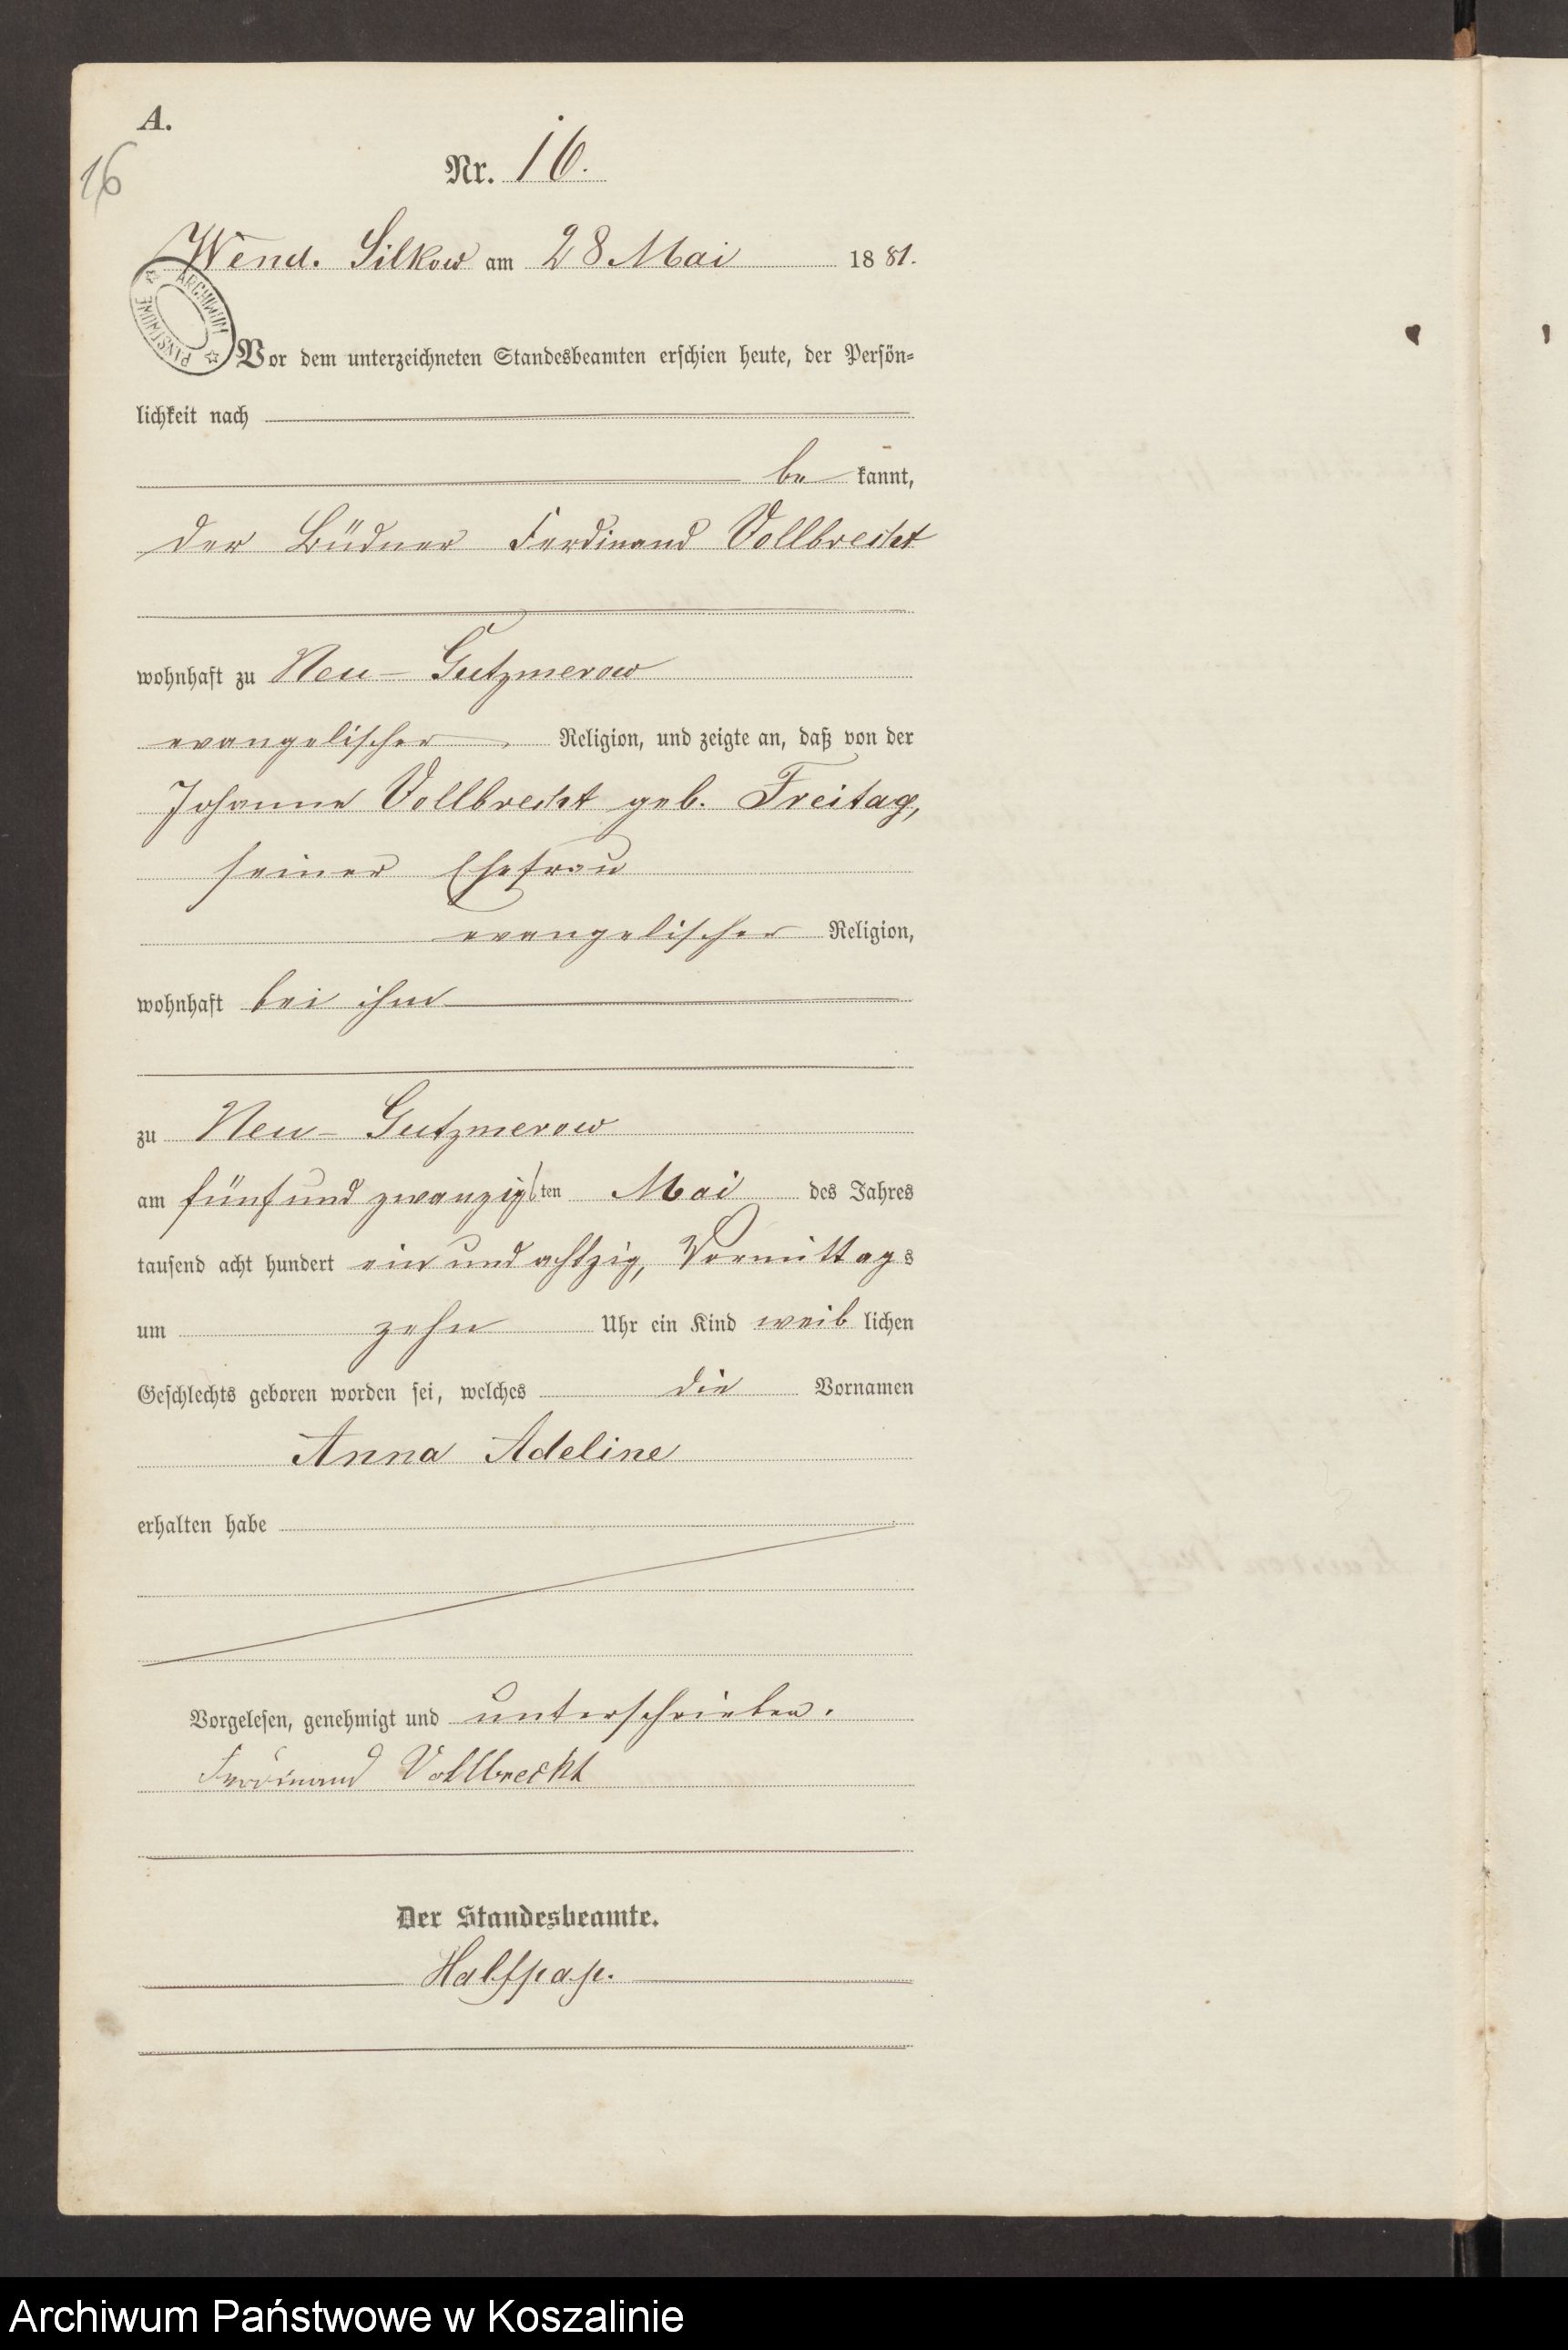 A.
16
Nr. 16.
Wend. Silkow am 28 Mai 1881.
ARCHIWUM PAŃSTWOWE
Vor dem unterzeichneten Standesbeamten erschien heute, der Persön-
lichkeit nach
be kannt,
der Büdner Ferdinand Vollbrecht
wohnhaft zu Neu-Gutzmerow
evangelischer Religion, und zeigte an, daß von der
Johanne Vollbrecht geb. Freitag,
seiner Ehefrau
evangelischer Religion,
wohnhaft bei ihm
zu Neu-Gutzmerow
am fünf und zwanzigsten Mai des Jahres
tausend acht hundert ein und achtzig, Vormittags
um zehn Uhr ein Kind weiblichen
Geschlechts geboren worden sei, welches die Vornamen
Anna Adeline
erhalten habe
Vorgelesen, genehmigt und unterschrieben.
Ferdinand Vollbrecht
Der Standesbeamte.
Halfpap.
Archiwum Państwowe w Koszalinie